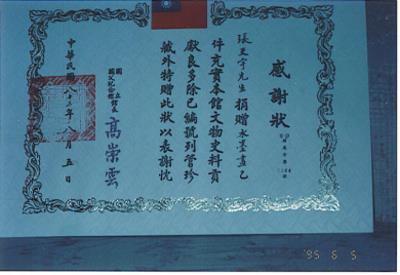 感謝狀
張王宇先生捐贈水墨畫乙
件充實本館文物史料貢
獻良多除已編號列管珍
藏外特贈此狀以表謝忱
國立
國父紀念館館長 高崇雲
中華民國八年月五日
'95 6 5